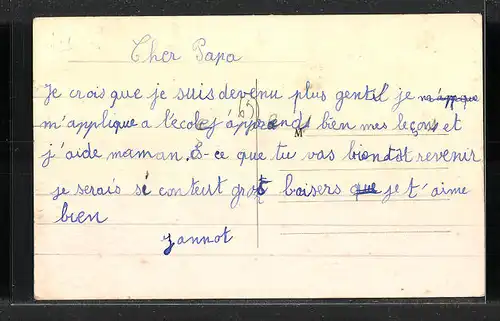 Cher Papa
Je crois que je suis devenu plus gentil je
m'applique a l'école j'apprends bien mes leçons et
j'aide maman, Es-ce que tu vas biendôt revenir
je serais si conteut gros baisers que je t'aime
bien
Jannot
M